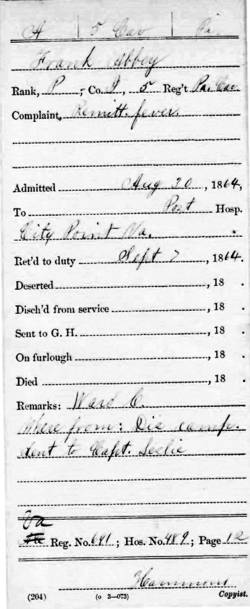 A 5 Cav Pa.
Frank Abbey
Rank, P; Co. I, 5 Reg't Pa. Cav.
Complaint, Remitt. fever.
Admitted Aug 20, 1864,
To Post Hosp.
City Point Va.
Ret'd to duty Sept 7, 1864.
Deserted, 18 .
Disch'd from service, 18 .
Sent to G. H., 18 .
On furlough, 18 .
Died, 18 .
Remarks: Ward C
Where from: Dis. camp.
Sent to Capt. Leslie
Va
Reg. No. 691; Hos. No. 489; Page 12
Hammond
(204) (o 3—073) Copyist.